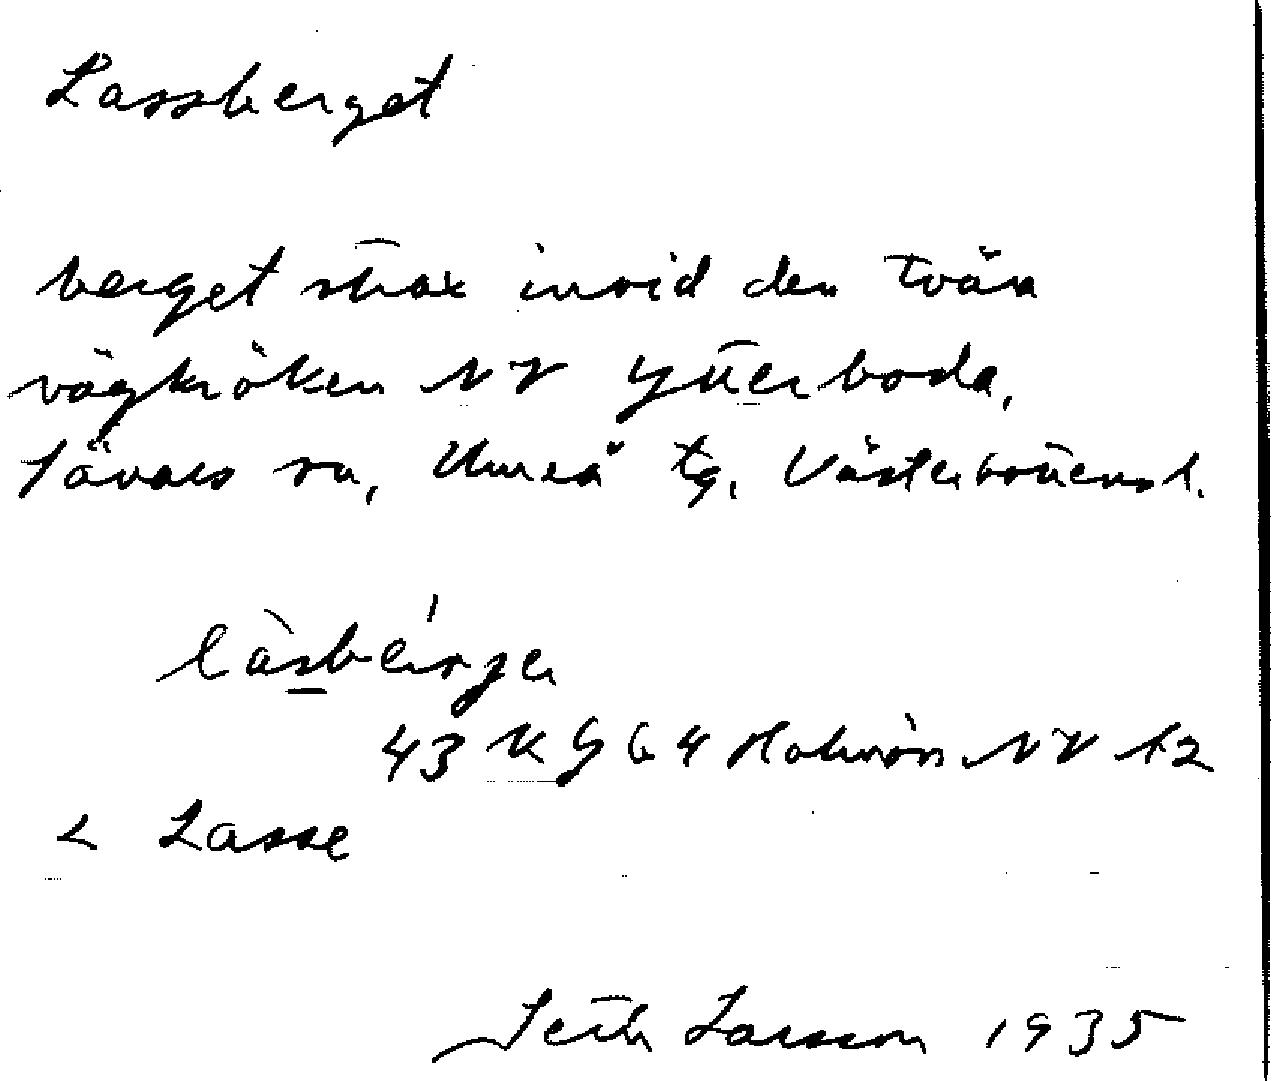 Lassberget
berget strax invid den tvära
vägkröken NV Ytterboda,
Sävars sn, Umeå tg, Västerbottens l.
làsbérjer
43 K G 64 Holmön NV 12
< Lasse
Seth Larsson 1935